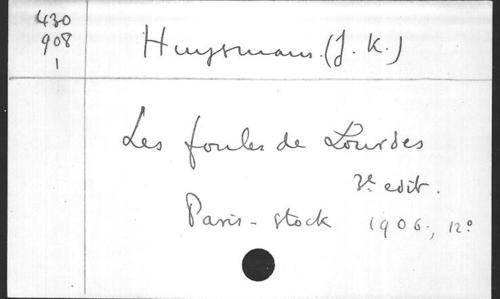 430
908
1
Huysmans. (J. K.)
Les foules de Lourdes
3e edit.
Paris - Stock 1906., 12°